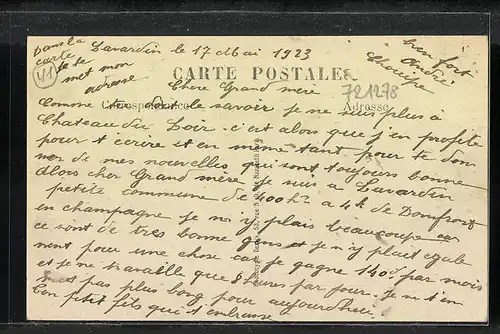 Lavardin le 17 Mai 1923
bien fort
André
Chouipe
Dans la
carte
je te
met mon
adresse
41
CARTE POSTALE
Chère Grand mère
721278
Correspondance
Adresse
Comme tu dois le savoir je ne suis plus à
Chateau du Loir c'est alors que j'en profite
pour t'écrire et en même tant pour te don
ner de mes nouvelles qui sont toujours bonne
alors cher Grand mère je suis a Lavardin
petite commune de 400 h^ts a 4 k de Domfront
en champagne je m'y plais beaucoup car
ce sont de très bonne gens et je m'y plait égale
ment pour une chose car je gagne 140^f par mois
et je ne travaille que 8 heures par jour. Je ne t'en
met pas plus long pour aujourd'hui
Ton petit fils qui t'embrasse